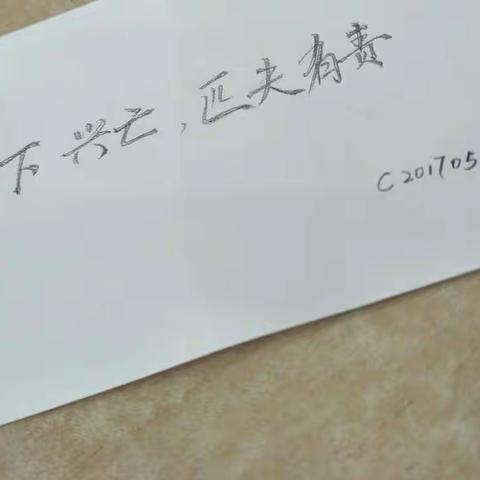 下兴亡，匹夫有责
C201705